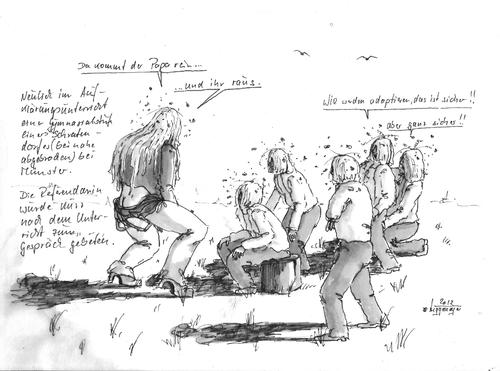 Da kommt der Papa rein...
...und ihr raus.
Neulich im Auf-
klärungsunterricht
einer Gymnasialstufe
eines Schraten
dorfes (bei nahe
abgesoden) bei
Münster.
Die Referendarin
wurde
nach dem Unter-
richt zum
Gespräch gebeten.
Wir werden adoptieren, das ist sicher!!
aber ganz sicher!!
2012